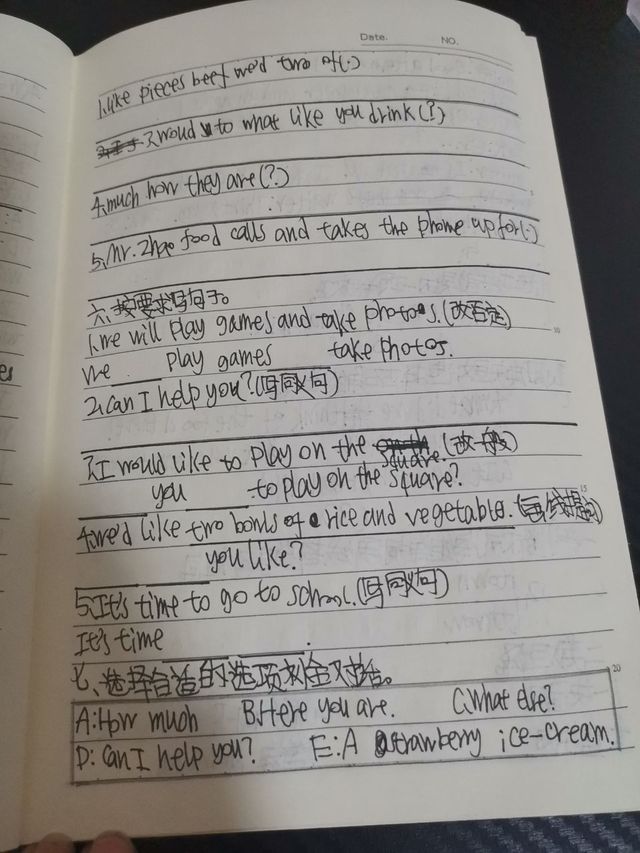 Date. NO.
1.like pieces beef we'd two of(.)
3.woud to what like you drink(?)
4.much how they are(?)
5.Mr. Zhao food calls and takes the phone up for(.)
六、按要求写句子。
1.we will play games and take photoes.(改否定)
We play games take photos.
2.can I help you?(写同义句)
3.I would like to play on the square.(改一般)
you to play on the square?
4.we'd like two bowls of rice and vegetable.
you like?
5.It's time to go to school.(写同义句)
It's time .
七、选择合适的选项补全对话。
A:How much B.Here you are. C.What else?
D: Can I help you? E:A strawberry ice-cream.
10
15
20